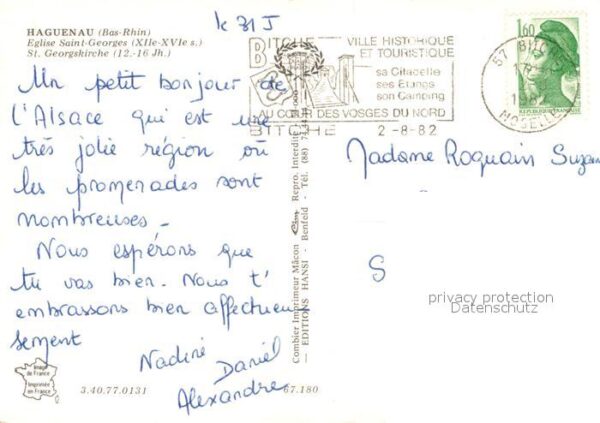 k 31 J
HAGUENAU (Bas-Rhin)
Eglise Saint-Georges (XIIe-XVIe s.)
St. Georgskirche (12.-16 Jh.)
Un petit bonjour de
l'Alsace qui est une
très jolie région où
les promenades sont
nombreuses.
Nous espérons que
tu vas bien. Nous t'
embrassons bien affectueu
sement
Nadine
Daniel
Alexandre
Image
de France
Imprimée
en France
3.40.77.0131
67.180
Combier Imprimeur Mâcon
Repro. Interdite
- EDITIONS HANSI - Benfeld - Tél. (88)
BITCHE
VILLE HISTORIQUE
ET TOURISTIQUE
sa Citadelle
ses Etangs
son Camping
AU COEUR DES VOSGES DU NORD
BITCHE 2-8-82
57 BITCHE
MOSELLE
1.60
REPUBLIQUE FRANÇAISE
Madame Roquain Suzan
S
privacy protection
Datenschutz